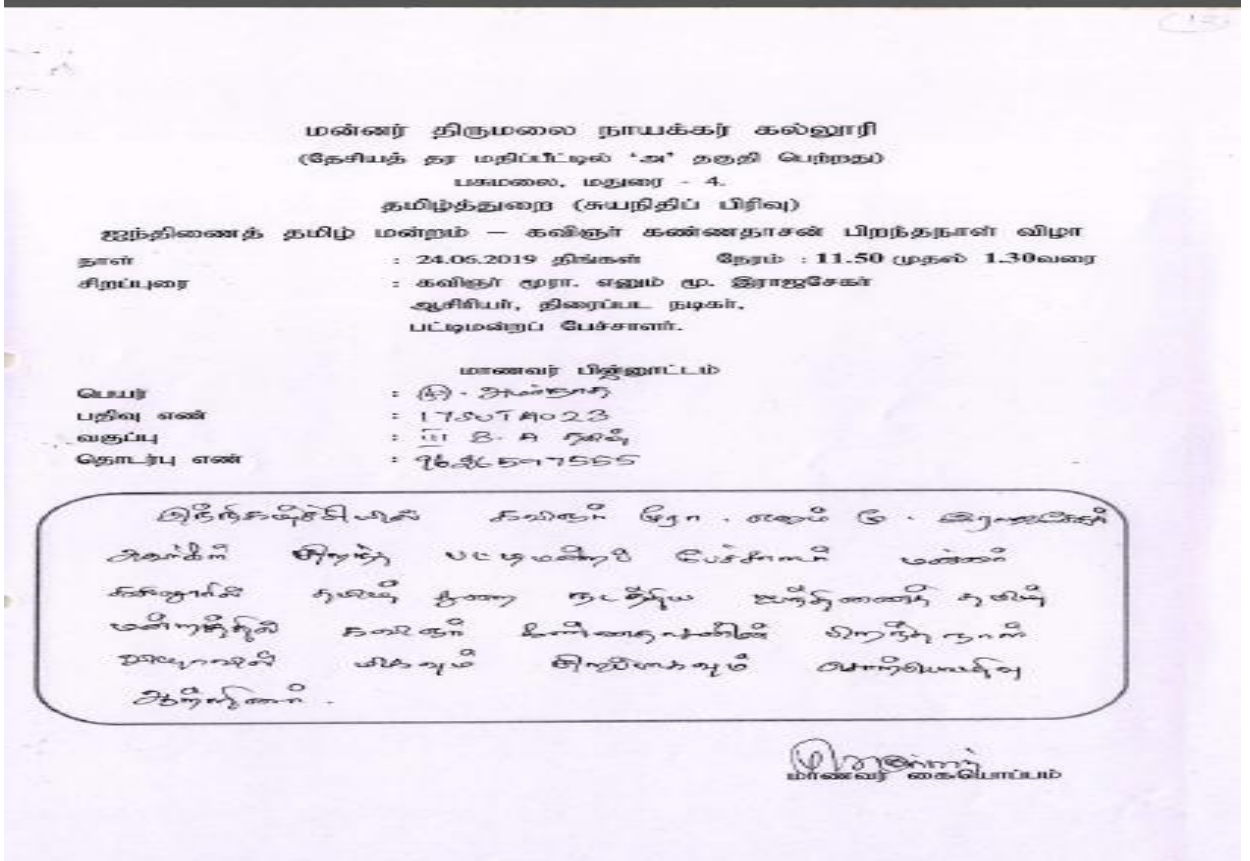 மன்னர் திருமலை நாயக்கர் கல்லூரி
(தேசியத் தர மதிப்பீட்டில் 'அ' தகுதி பெற்றது)
பசுமலை, மதுரை - 4.
தமிழ்த்துறை (சுயநிதிப் பிரிவு)
ஐந்திணைத் தமிழ் மன்றம் – கவிஞர் கண்ணதாசன் பிறந்தநாள் விழா
நாள் : 24.06.2019 திங்கள் நேரம் : 11.50 முதல் 1.30வரை
சிறப்புரை : கவிஞர் மூரா. எனும் மூ. இராஜசேகர்
ஆசிரியர், திரைப்பட நடிகர்,
பட்டிமன்றப் பேச்சாளர்.
மாணவர் பின்னூட்டம்
பெயர் :
பதிவு எண் : 17SUTA023
வகுப்பு : III B. A தமிழ்
தொடர்பு எண் :
இந்நிகழ்ச்சியில் கவிஞர் மூரா. எனும் மூ. இராஜசேகர்
அவர்கள் சிறந்த பட்டிமன்றப் பேச்சாளர் மன்னர்
கல்லூரியில் தமிழ் துறை நடத்திய ஐந்திணைத் தமிழ்
மன்றத்தில் கவிஞர் கண்ணதாசனின் பிறந்த நாள்
விழாவில் மிகவும் சிறப்பாகவும் சொற்பொழிவு
ஆற்றினார்.
மாணவர் கையொப்பம்